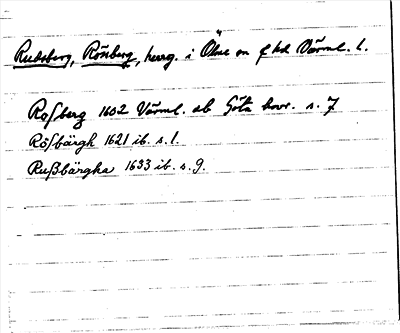 Rudsberg, Rönberg, herrg. i Ölme sn f hd Värml. l.
Roſberg 1602 Värml. ab Göta hovr. s. 7
Röſbärgh 1621 ib. s. 1.
Rußbärgha 1633 ib. s. 9.